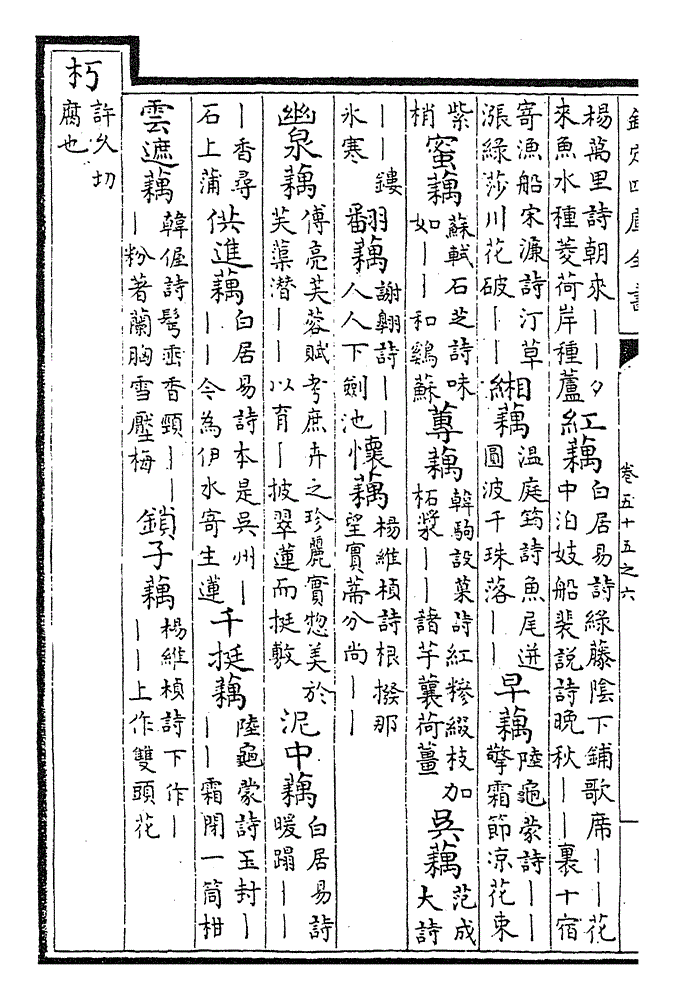 欽定四庫全書
卷五十五之六
楊萬里詩朝來｜｜夕來魚水種菱荷岸種蘆 紅藕 白居易詩綠藤陰下鋪歌席｜｜花中泊妓船裴說詩晚秋｜｜裏十宿
寄漁船宋濂詩汀草漲綠莎川花破｜｜ 緗藕 溫庭筠詩魚尾迸圓波千珠落｜｜ 早藕 陸龜蒙詩｜｜擎霜節涼花束
紫梢 蜜藕 蘇軾石芝詩味如｜｜和鷄蘇 蓴藕 韓駒設菓詩紅糝綴枝加柘漿｜｜諸芋蘘荷薑 吳藕 范成大詩
｜｜鏤氷寒 翻藕 謝翱詩｜｜人人下劒池 懷藕 楊維楨詩根撥那望實蓄分尚｜｜
幽泉藕 傅亮芙蓉賦考庶卉之珍麗實惣美於芙蕖潜｜｜以育｜披翠蓮而挺敷 泥中藕 白居易詩暖蹋｜｜
｜香尋石上蒲 供進藕 白居易詩本是吳州｜｜｜今為伊水寄生蓮 千挺藕 陸龜蒙詩玉封｜｜｜霜閉一筒柑
雲遮藕 韓偓詩髩垂香頸｜｜｜粉著蘭胸雪壓梅 鎖子藕 楊維楨詩下作｜｜｜上作雙頭花
朽 許久切腐也